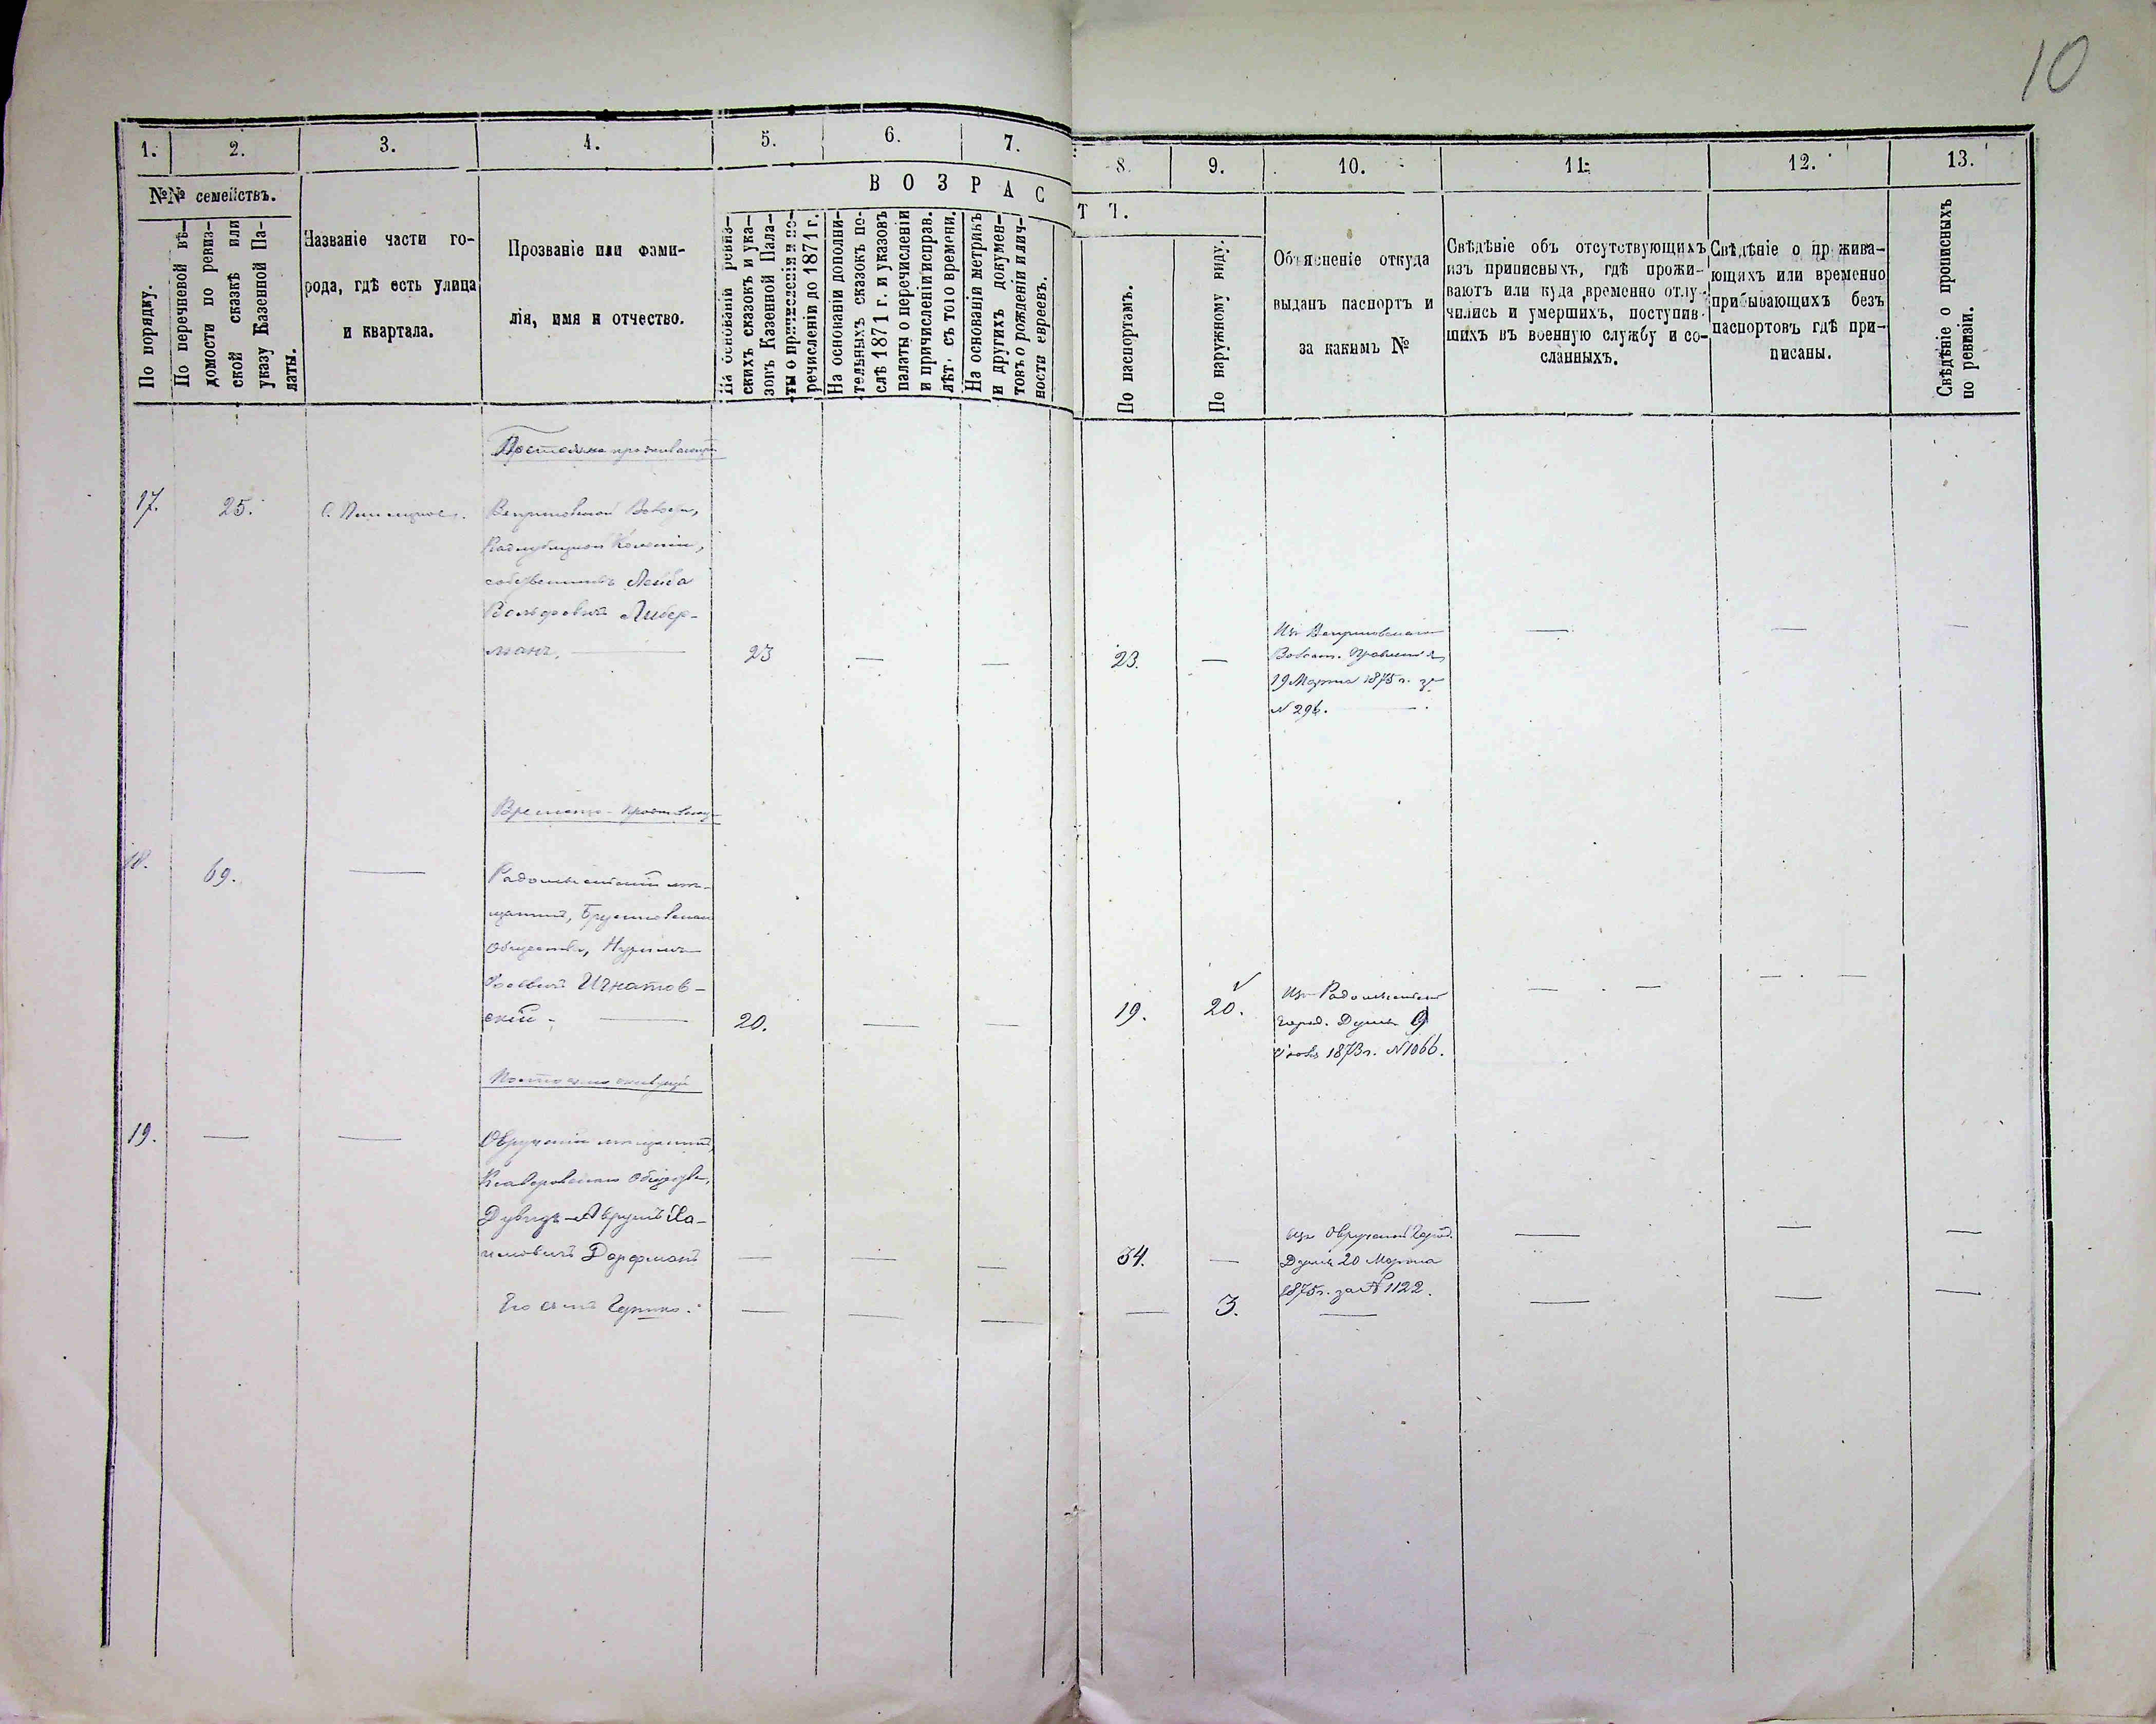 10
1. 2. 3. 4. 5. 6. 7. 8. 9. 10. 11. 12. 13.
№№ семействъ.
По порядку.
По перечневой вѣ-
домости по ревиз-
ской сказкѣ или
указу Казенной Па-
латы.
Названіе части го-
рода, гдѣ есть улица
и квартала.
Прозваніе или фами-
лія, имя и отчество.
ВОЗРАСТЪ.
На основаніи ревиз-
скихъ сказокъ и ука-
зовъ Казенной Пала-
ты о причисленіи и пе-
речисленіи до 1871 г.
На основаніи дополни-
тельныхъ сказокъ по-
слѣ 1871 г. и указовъ
палаты о перечисленіи
и причисленіи исправ.
лѣт. съ того времени.
На основаніи метрикъ
и другихъ докумен-
товъ о рожденіи и лич-
ности евреевъ.
По паспортамъ.
По наружному виду.
Объясненіе откуда
выданъ паспортъ и
за какимъ №
Свѣдѣніе объ отсутствующихъ
изъ приписныхъ, гдѣ прожи-
ваютъ или куда временно отлу-
чились и умершихъ, поступив-
шихъ въ военную службу и со-
сланныхъ.
Свѣдѣніе о прожива-
ющихъ или временно
прибывающихъ безъ
паспортовъ гдѣ при-
писаны.
Свѣдѣніе о прописныхъ
по ревизіи.
17. 25.
Волости,
Колоніи,
собственникъ Лейба
Вольфовичъ Либер-
манъ. — 23 — — 23. —
Изъ
Волост. Правленія
19 Марта 1875 г. за
№ 296. —
— — —
Временно-
18. 69. —
Радомысльскій мѣ-
щанинъ, Брусиловскаго
Общества,
Игнатов-
скій. — 20. — — 19. 20.
Изъ Радомысльской
Город. Думы 9
1873 г. №1066.
— — — —
19. — —
Овручскій мѣщанинъ,
Общества,
Дувидъ-Аврумъ Ха-
имовичъ Дорфманъ — — — 34. —
Изъ Овручской Город.
Думы 20 Марта
1875 г. за №1122.
— — —
Его сынъ — — — — 3. — — — —